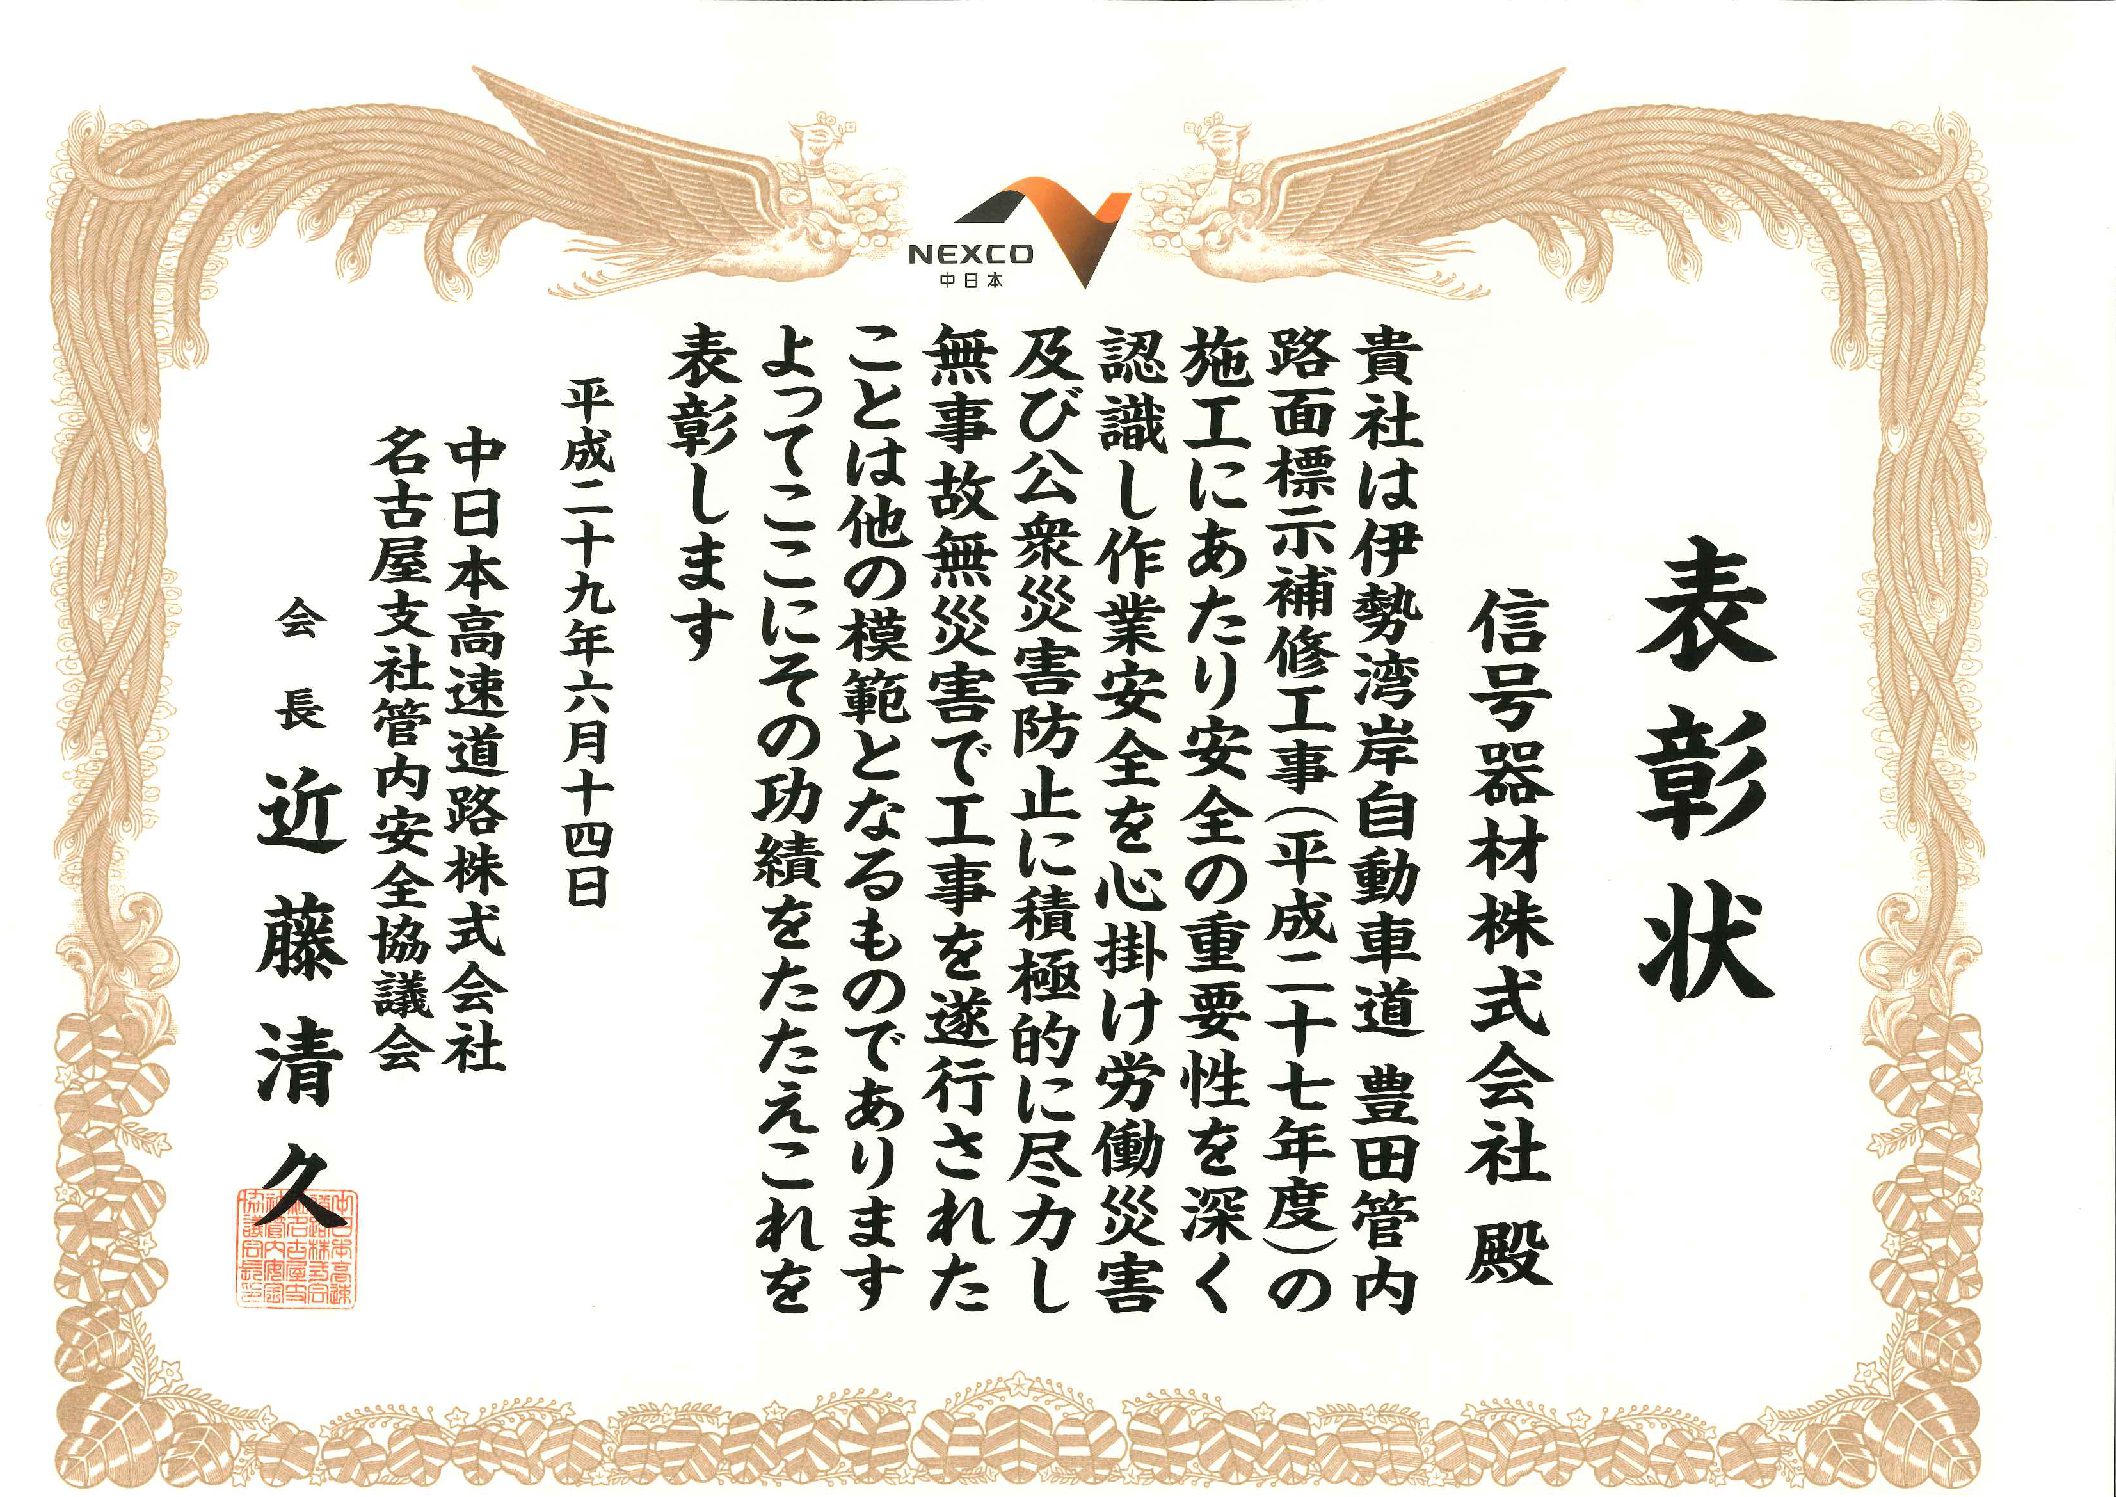 NEXCO
中日本
表彰状
信号器材株式会社 殿
貴社は伊勢湾岸自動車道 豊田管内
路面標示補修工事（平成二十七年度）の
施工にあたり安全の重要性を深く
認識し作業安全を心掛け労働災害
及び公衆災害防止に積極的に尽力し
無事故無災害で工事を遂行された
ことは他の模範となるものであります
よってここにその功績をたたえこれを
表彰します
平成二十九年六月十四日
中日本高速道路株式会社
名古屋支社管内安全協議会
会長 近藤清久